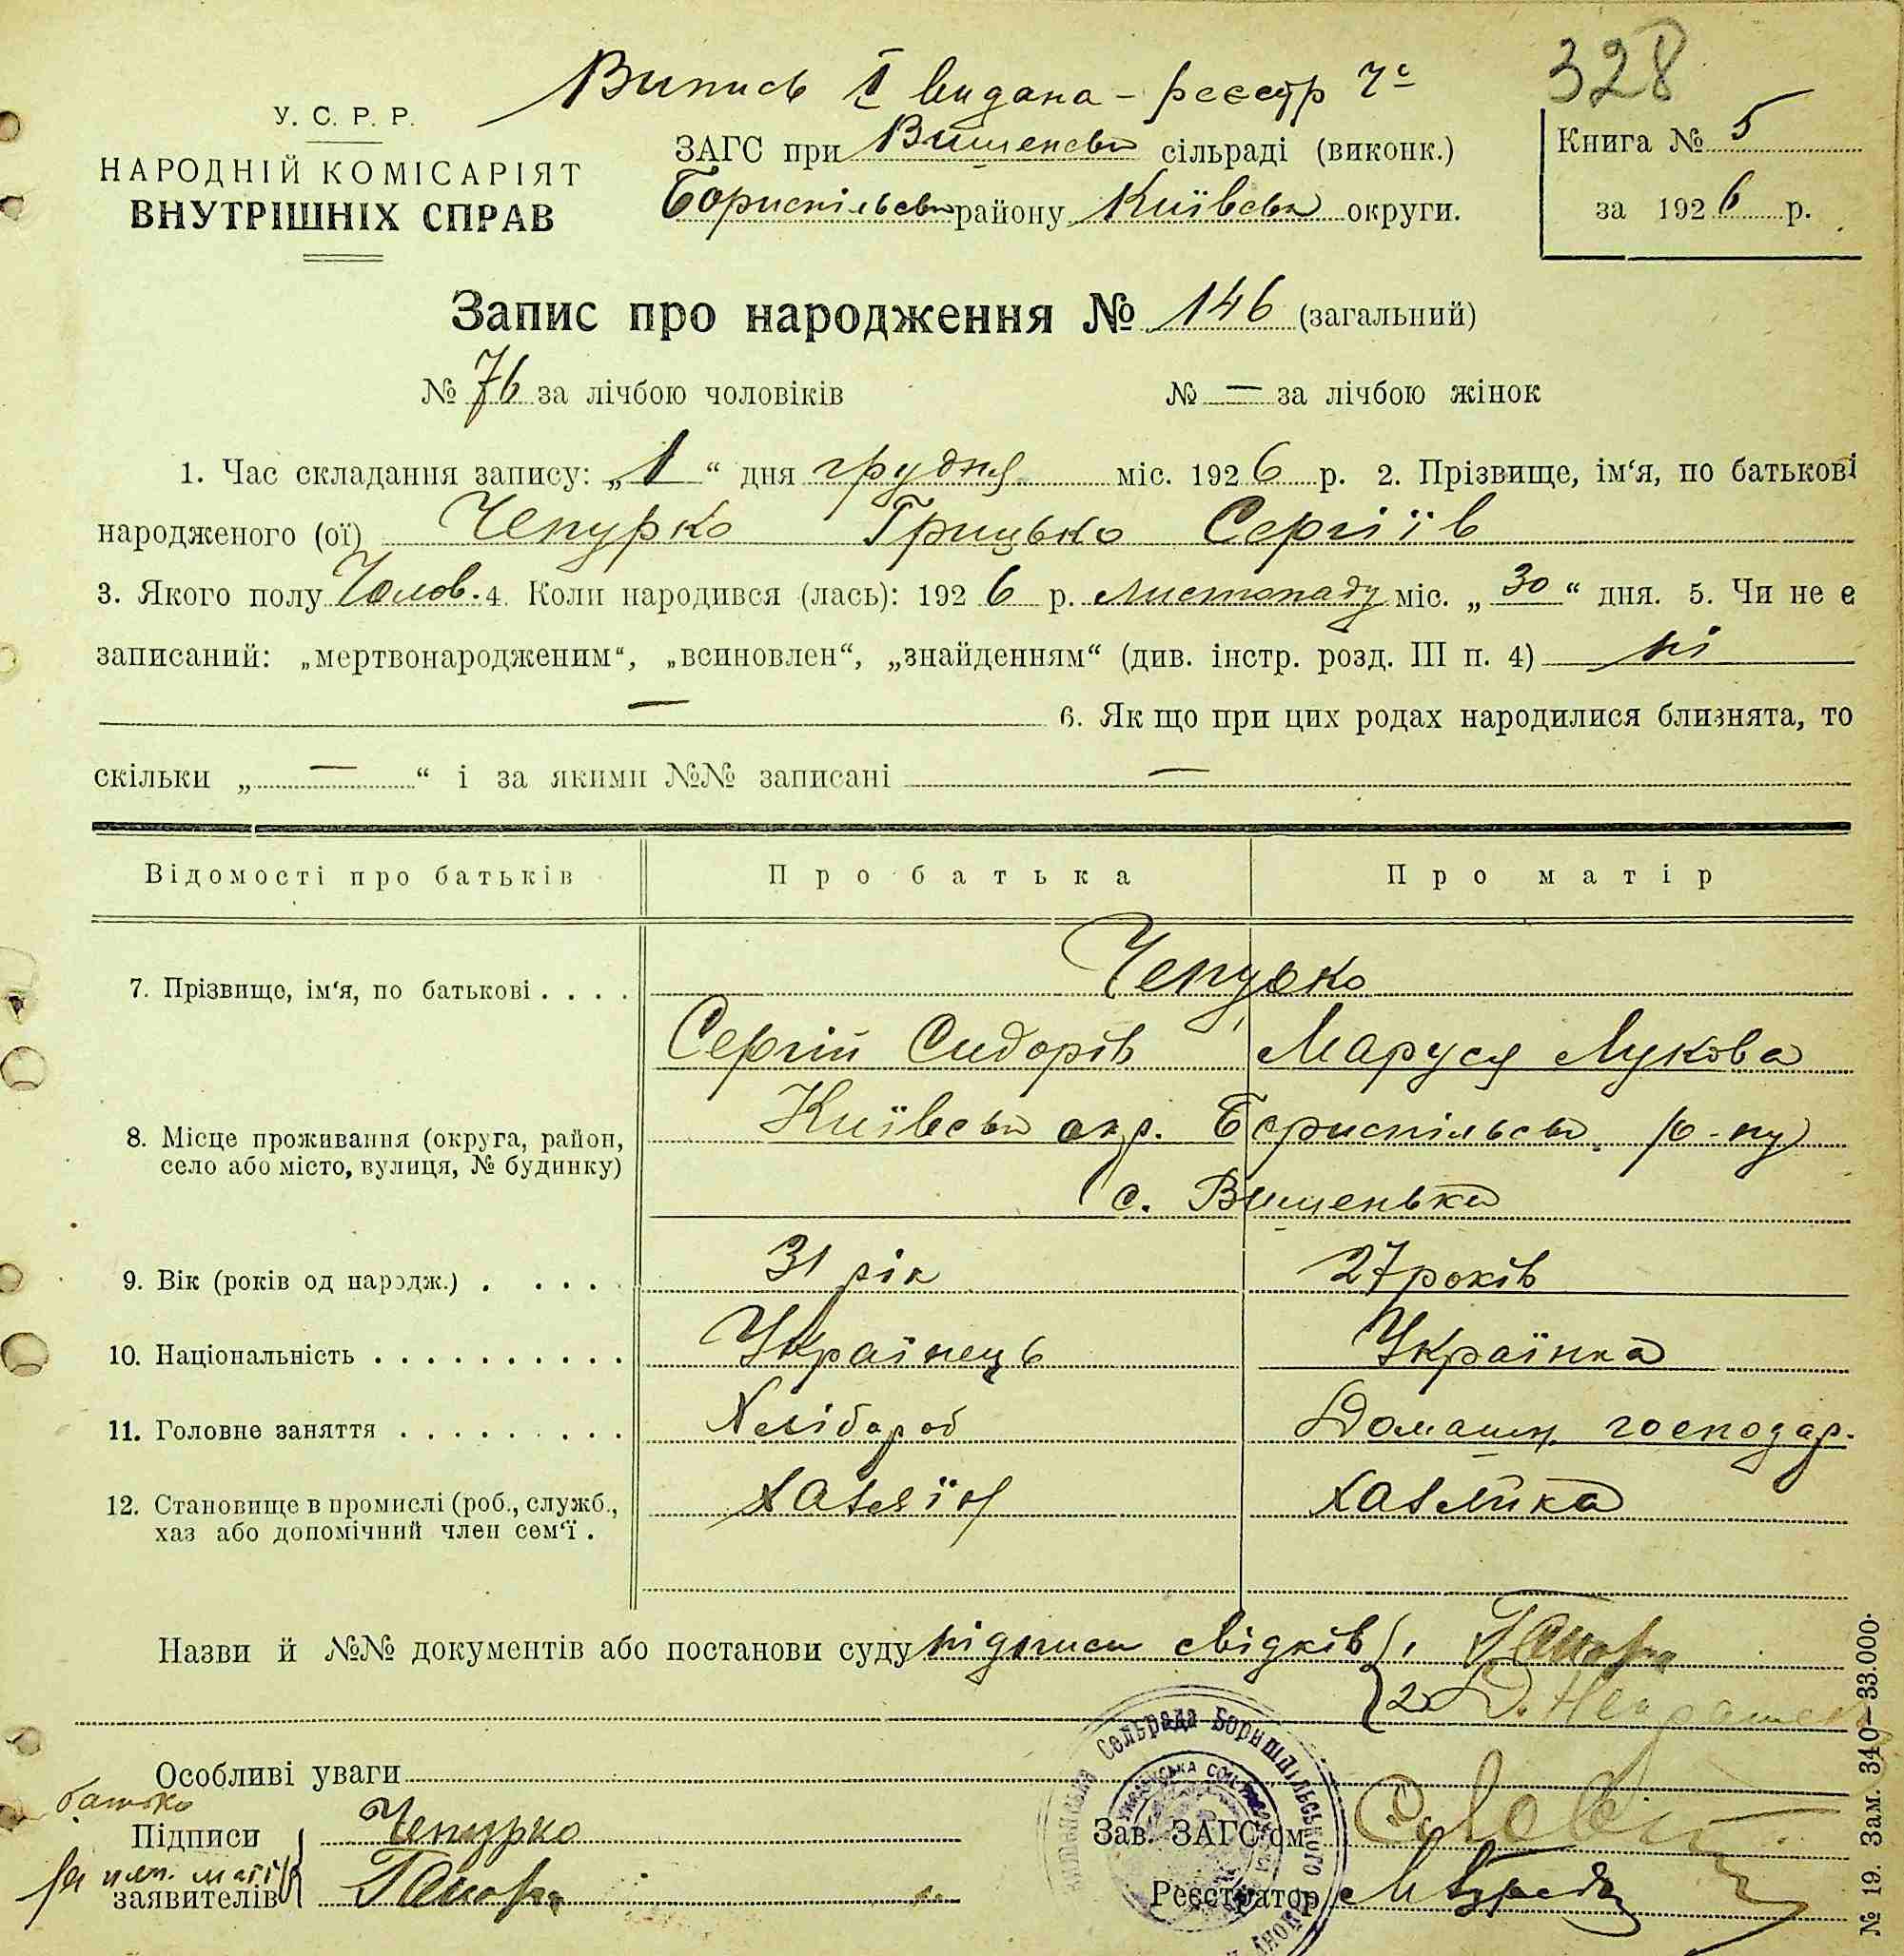 Випись I видана – реєстр
328
У. С. Р. Р.
НАРОДНІЙ КОМІСАРІЯТ
ВНУТРІШНІХ СПРАВ
ЗАГС при Вишенськ сільраді (виконк.)
Бориспільськ району Київськ округи.
Книга № 5
за 1926 р.
Запис про народження № 146 (загальний)
№ 76 за лічбою чоловіків № — за лічбою жінок
1. Час складання запису: „1“ дня грудня міс. 1926 р. 2. Прізвище, ім‘я, по батькові
народженого (ої) Чепурко Грицько Сергіїв
3. Якого полу Чолов. 4. Коли народився (лась): 1926 р. листопаду міс. „30“ дня. 5. Чи не є
записаний: „мертвонародженим“, „всиновлен“, „знайденням“ (див. інстр. розд. III п. 4) ні
— 6. Як що при цих родах народилися близнята, то
скільки „—“ і за якими №№ записані —
Відомості про батьків Про батька Про матір
7. Прізвище, ім‘я, по батькові . . . . Чепурко
Сергій Сидорів Маруся Лукова
8. Місце проживання (округа, район, Київськ окр. Бориспільськ. р-ну
село або місто, вулиця, № будинку) с. Вишеньки
9. Вік (років од народж.) . . . . 31 рік 27 років
10. Національність . . . . . . . . . . Українець Українка
11. Головне заняття . . . . . . . . . Хлібороб Домашн. господар.
12. Становище в промислі (роб., служб., Хазяїн Хазяйка
хаз або допомічний член сем‘ї .
Назви й №№ документів або постанови суду підписи свідків 1,
2
Особливі уваги
батько
Підписи Чепурко
заявителів
Зав. ЗАГС‘ом
Реєстратор
Сельрада Бориспільського
№ 19. Зам. 340—33.000.